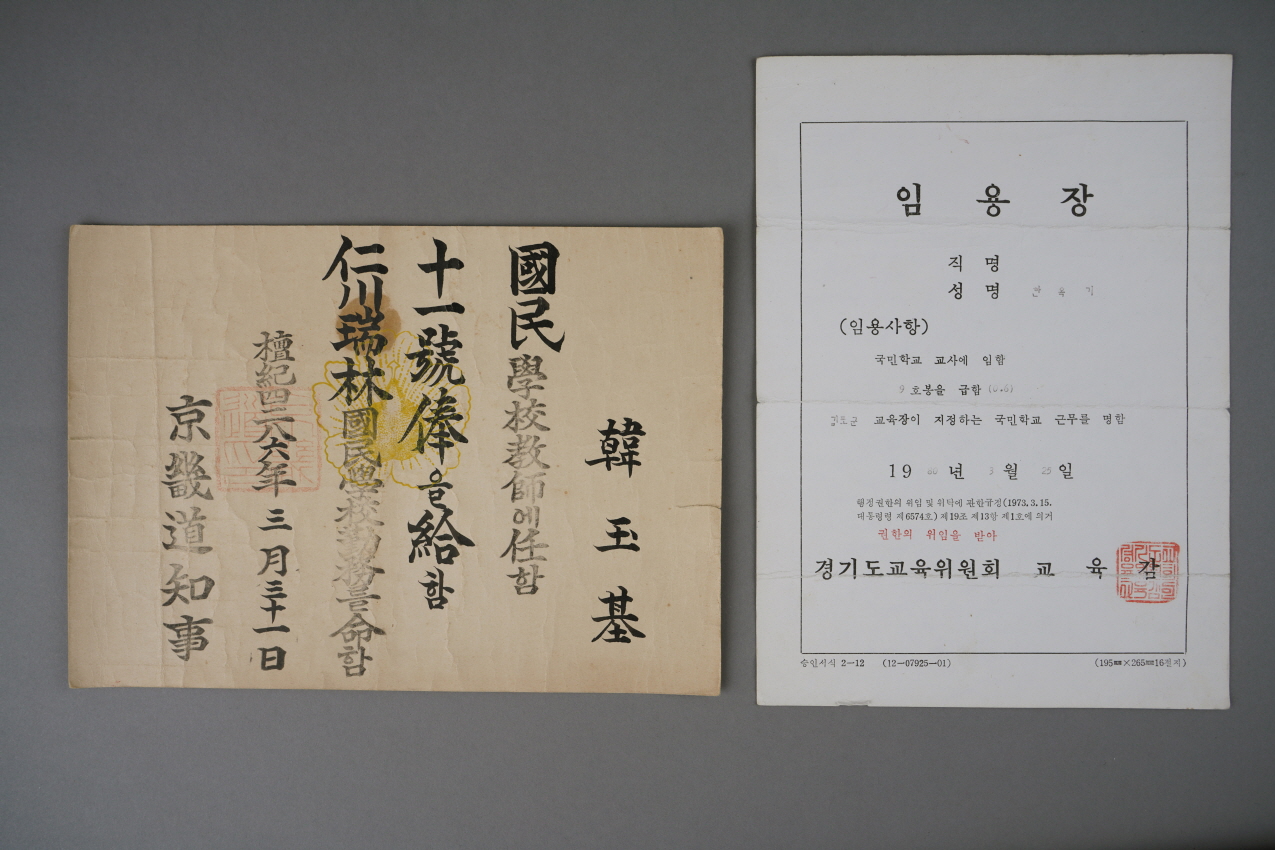 韓玉基
國民學校教師에任함
十一號俸을給함
仁川瑞林國民學校勤務를命함
檀紀四二八六年三月三十一日
京畿道知事
임용장
직명
성명 한옥기
(임용사항)
국민학교 교사에 임함
9 호봉을 급함 (0.6)
김포군 교육장이 지정하는 국민학교 근무를 명함
19 80 년 3 월 25 일
행정권한의 위임 및 위탁에 관한규정(1973.3.15.
대통령령 제6574호) 제19조 제13항 제1호에 의거
권한의 위임을 받아
경기도교육위원회 교육감
승인서식 2-12 (12-07925-01) (195㎜×265㎜16절지)